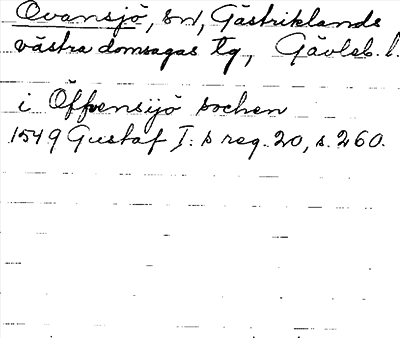 Ovansjö, sn, Gästriklands
västra domsagas tg, Gävleb. l.
i Öffvensijö sochen
1549 Gustaf I: s reg. 20, s. 260.